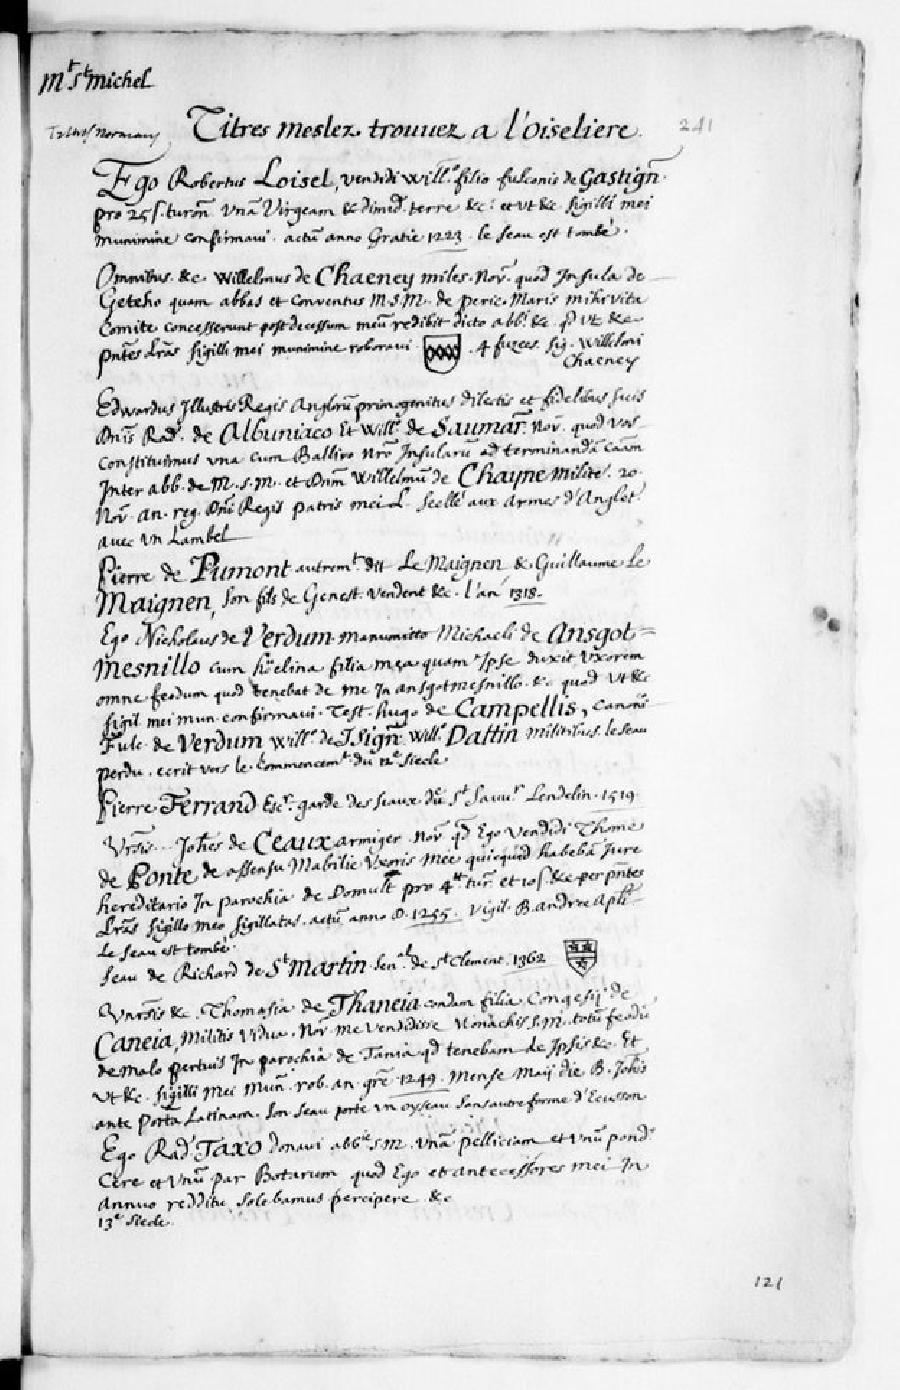 Mt St Michel
Titres meslez trouvez a l'oiseliere. 241
Ego Robertus Loisel, vendidi Will.o filio fulconis de Gastign̄
pro 25 s. turon̄ Vnā Virgeam & dimid. terre &c. et vt &c. sigilli mei
munimine confirmavi. actū anno Gratie 1223. le seau est tombé.
Omnibus &c. Willelmus de Chaeney miles. Nov. quod Insula de
Geteho quam abbas et Conventus M.S.M. de peric. Maris mihi vita
Comite concesserunt post decessum meū redibit dicto abb. &c. qd vt &c
pn̄tes Lrās sigilli mei munimine roboravi. 4 fuzees. sig. Willelmi
Chaeney
Edwardus Illustris Regis Anglorū primogenitus dilectis et fidelibus suis
Dn̄is Rad. de Albuniaco Et Will. de Saumar̄. Nov. quod Vos
Constituimus vna cum Ballivo Nrō Insularū ad terminandā Caām
Inter abb. de M.S.M. et Dnm̄ Willelmū de Chayne milite. 20
Nov. an. reg. Dn̄i Regis patris mei L. Scellé aux Armes d'Anglet.
avec vn Lambel
Pierre de Pumont autremt. dit Le Maignen & Guillaume Le
Maignen, son fils de Genest. vendent &c. l'an 1318.
Ego Nicholaus de Verdum manumitto Michaeli de Ansgot=
mesnillo cum filia mea quam Ipse duxit Vxorem
omne feodum quod tenebat de me In ansgotmesnillo. &c. quod Vt &c
sigil mei mun. confirmavi. Test. hugo de Campellis, Canoni
Fulc. de Verdum Will.o de Isign̄. Will.o Dattin militibus. le seau
perdu. ecrit vers le Commencemt. du 12e Siecle
Pierre Ferrand Escr. garde des seaux du St Sauvr Lendelin. 1519.
Vrsis... Johēs de Ceaux armiger. Nov. qd Ego Vendidi Thome
de Ponte de assensu Mabilie Vxoris Mee quicquid habebā Jure
hereditario In parochia de Domult pro 4tt tur. et 10 s. &c. per pn̄tes
Lrās sigillo meo sigillatas. actū anno D. 1255. Vigil. B. Andree Apli
Le seau est tombé.
Seau de Richard de St Martin Sen.al de St Clement. 1362
Vnrsis &c. Thomasia de Thaneia condam filia Congesij de
Caneia, Militis Vidua. Nov. me vendidisse Monachis S.M. totū feodū
de malo pertuis In parochia de Tania qd tenebam de Ipsis &c. Et
vt &c. sigilli Mei Mun̄. rob. an. grē 1249. Mense Maij die B. Johīs
ante Portā Latinam. Son seau porte vn oyseau sans autre forme d'Ecusson
Ego Rad. Taxo donavi abb.e S.M. vnā pelliciam et Vnū pond.
Cere et Vnū par Botarum quod Ego et antecessores mei In
annuo redditu solebamus percipere &c
13e siecle.
121